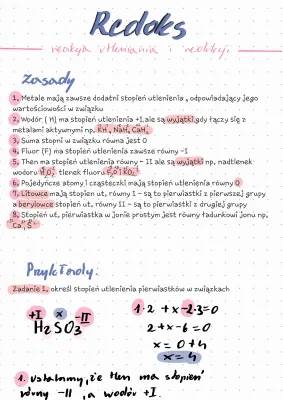 Redoks
reakcja utleniania i redukcji
Zasady
1. Metale mają zawsze dodatni stopień utlenienia , odpowiadający jego
wartościowości w związku
2. Wodór ( H) ma stopień utlenienia +I.ale są wyjątki gdy łączy się z
metalami aktywnymi np. KH , NaH, CaH₂
3. Suma stopni w związku równa jest 0
4. Fluor (F) ma stopień utlenienia zawsze równy -I
5. Tlen ma stopień utlenienia równy - II ale są wyjątki np. nadtlenek
wodoru H₂O₂ tlenek fluoru F₂O i KO₂
6. Pojedyńcze atomy i cząsteczki mają stopień utlenienia równy 0
7. Litowce mają stopień ut, równy I - są to pierwiastki z pierwszej grupy
a berylowce stopień ut, równy II - są to pierwiastki z drugiej grupy
8. Stopień ut, pierwiastka w jonie prostym jest równy ładunkowi jonu np,
Ca, S
Przykłady:
Zadanie 1, określ stopień utlenienia pierwiastków w związkach
+I x -II
H₂SO₃
1·2 +x-2·3=0
2+x-6=0
x = 0+4
x = 4
1. Ustalamy, że tlen ma stopień
równy -II , a wodór +I.